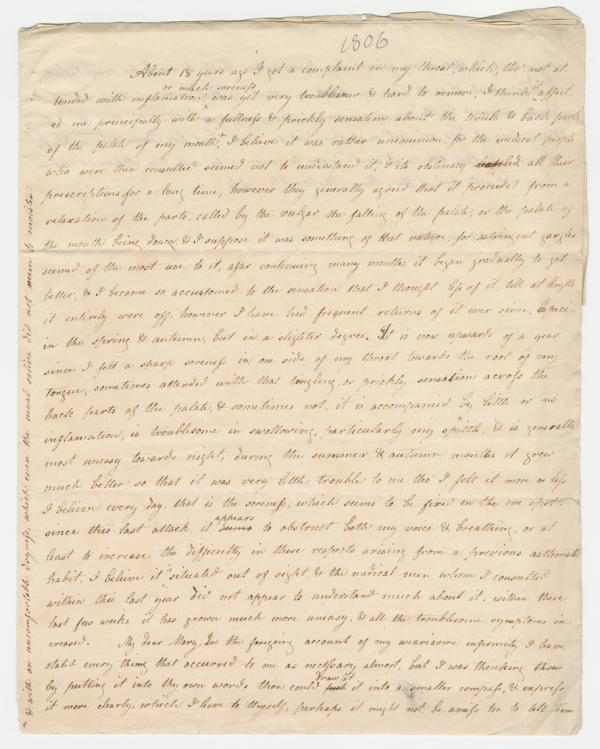 1806
About 18 years ago I got a complaint in my throat, which, tho' not at
or much soreness
tended with inflamation was yet very troublesome & hard to remove, I think affect
ed me principally with a fullness & prickly sensation about the uvula & back parts
of the palate of my mouth, I believe it was rather uncommon for the medical people
who were then consulted seemed not to understand it, & its obstinacy baffled all their
prescriptions for a long time, however they generally agreed that it proceeded from a
relaxation of the parts, called by the vulgar the falling of the palate, or the palate of
the mouth being down, & I suppose it was something of that nature, for astringent gargles
seemed of the most use to it, after continuing many months it began gradually to get
better, & I became so accustomed to the sensation that I thought less of it, till at length
it entirely wore off, however I have had frequent returns of it ever since, Especi
in the spring & autumn, but in a slighter degree. It is now upwards of a year
since I felt a sharp soreness in one side of my throat towards the root of my
tongue, sometimes attended with that tingling, or prickly sensation across the
back parts of the palate, & sometimes not, it is accompanied by little or no
inflamation, is troublesome in swallowing, particularly my spittle, & is generally
most uneasy towards night, during the summer & autumn months it grew
much better, so that it was very little trouble to me tho' I felt it more or less
I believe every day, that is the soreness, which seems to be fixed in the one spot
since this last attack, it appears to obstruct both my voice & breathing, or at
least to increase the difficulty in these respects arising from a previous asthmatic
habit, I believe it is situated out of sight, & the medical men whom I consulted
within this last year did not appear to understand much about it. within these
last few weeks it has grown much more uneasy, & all the troublesome symptoms in
creased. My dear Mary, In the foregoing account of my wearisome infirmity I have
stated every thing that occurred to me as necessary almost, but I was thinking
by putting it into thy own words thou could draw it into a smaller compass, & express
it more clearly, which I leave to thyself, perhaps it might not be amiss too to tell him
& with an uncomfortable dryness, which even the usual saliva did not seem to moisten